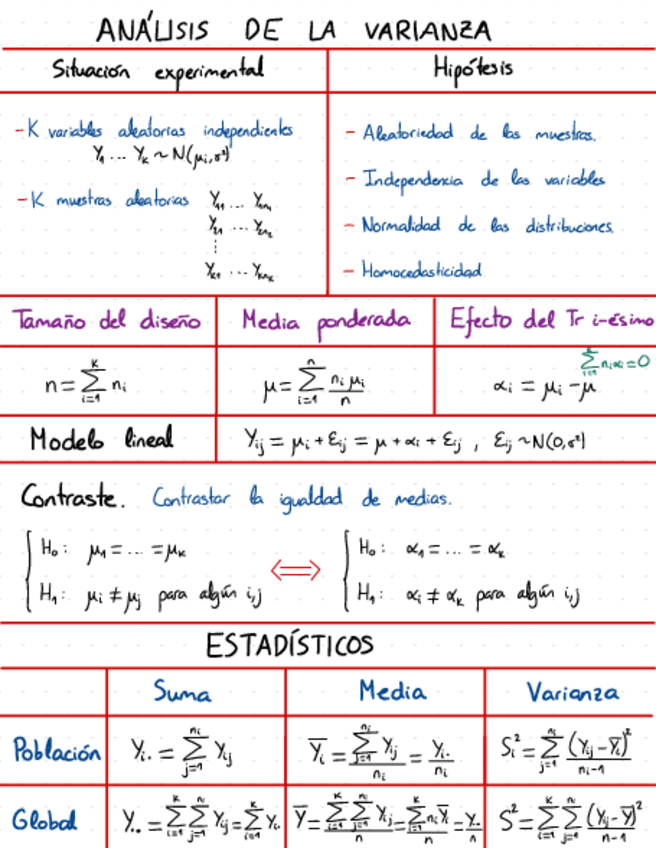 ANÁLISIS DE LA VARIANZA
Situación experimental
Hipótesis
- K variables aleatorias independientes
Y₁ ... Yₖ ~ N(μᵢ,σ²)
- K muestras aleatorias Y₁₁ ... Y₁ₙ₁
Y₂₁ ... Y₂ₙ₂
⋮
Yₖ₁ ... Yₖₙₖ
- Aleatoriedad de las muestras.
- Independencia de las variables
- Normalidad de las distribuciones.
- Homocedasticidad
Tamaño del diseño
Media ponderada
Efecto del Tr i-ésimo
n = ∑_{i=1}^{k} nᵢ
μ = ∑_{i=1}^{n} nᵢμᵢ/n
∑_{i=1}^{k} nᵢαᵢ=0
αᵢ = μᵢ - μ
Modelo lineal
Yᵢⱼ = μᵢ + Ɛᵢⱼ = μ + αᵢ + Ɛᵢⱼ , Ɛᵢⱼ ~ N(0,σ²)
Contraste. Contrastar la igualdad de medias.
H₀: μ₁ = ... = μₖ ⟺ H₀: α₁ = ... = αₖ
H₁: μᵢ ≠ μⱼ para algún i,j H₁: αᵢ ≠ αₖ para algún i,j
ESTADÍSTICOS
Suma Media Varianza
Población Yᵢ. = ∑_{j=1}^{nᵢ} Yᵢⱼ Y̅ᵢ = ∑_{j=1}^{nᵢ} Yᵢⱼ/nᵢ = Yᵢ./nᵢ Sᵢ² = ∑_{j=1}^{nᵢ} (Yᵢⱼ - Y̅ᵢ)²/(nᵢ-1)
Global Y.. = ∑_{i=1}^{k} ∑_{j=1}^{nᵢ} Yᵢⱼ = ∑_{i=1}^{k} Yᵢ. Y̅ = ∑_{i=1}^{k} ∑_{j=1}^{nᵢ} Yᵢⱼ/n = ∑_{i=1}^{k} nᵢY̅ᵢ/n = Y../n S² = ∑_{i=1}^{k} ∑_{j=1}^{nᵢ} (Yᵢⱼ - Y̅)²/(n-1)